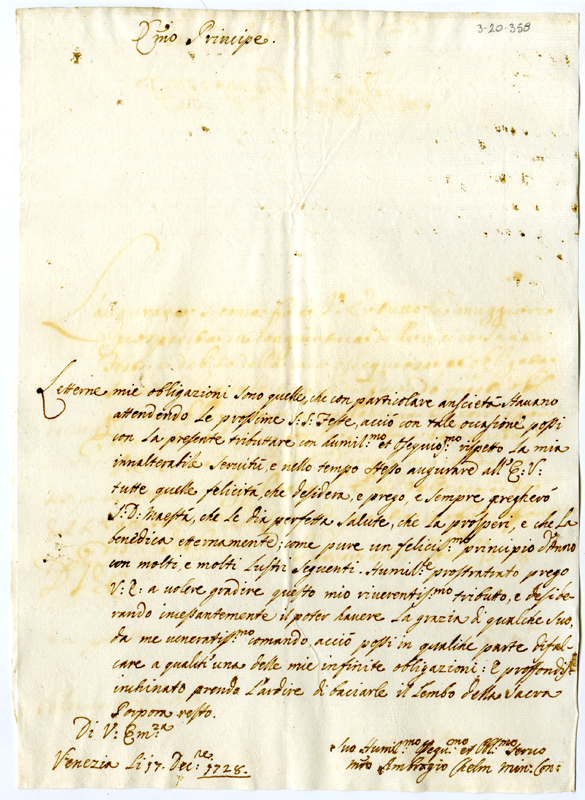 3-20-358
E:mo Principe.
Letterne mie obligazioni sono quelle, che con particolare ansietà stavano
attendendo le prossime S:S: Feste, acciò con tale ocasione possi
con la presente tributare con aumil:mo et ossequio:mo rispetto la mia
innalterabile servitù, e nello tempo stesso augurare all'E:V:
tutte quelle felicità, che desidera, e prego, e sempre pregherò
S:D: Maestà, che le dia perfetta salute, che la prosperi, e che la
benedica eternamente; come pure un felicis:mo principio d'Anno
con molti, e molti lustri seguenti. Humil:te prostratato prego
V:E: a volere gradire questo mio riverentis:mo tributo, e deside-
rando incessantemente il poter havere la grazia di qualche suo,
da me veneratiss:mo comando, acciò possi in qualche parte difal-
care a qualc'una delle mie infinite obligazioni: E proffondis:te
inchinato prendo l'ardire di baciarle il lembo della sacra
Porpora resto.
Di V: Em:za
Venezia li 17. Dec:re 1728.
Suo Humil:mo Osequ:mo et Obl:mo servo
Ambrogio Chelm Min: Con: